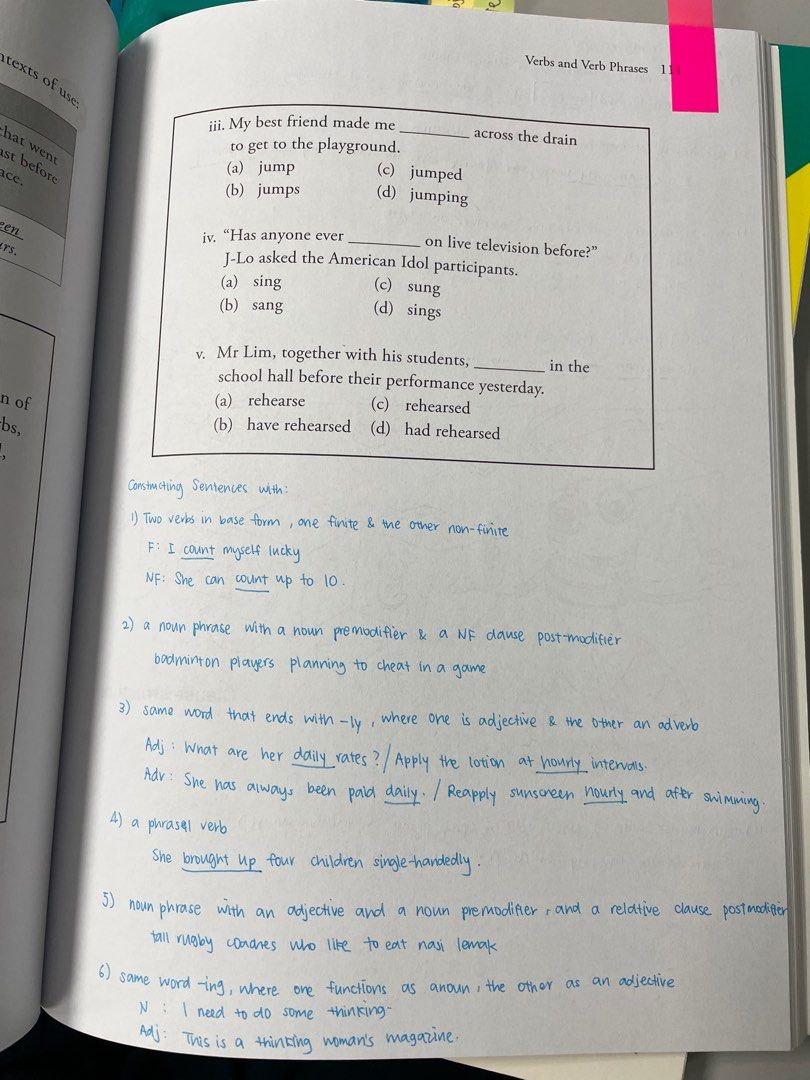 ntexts of use:
hat went
ast before
ace.
een
urs.
n of
bs,
Verbs and Verb Phrases 111
iii. My best friend made me ________ across the drain
to get to the playground.
(a) jump (c) jumped
(b) jumps (d) jumping
iv. “Has anyone ever ________ on live television before?”
J-Lo asked the American Idol participants.
(a) sing (c) sung
(b) sang (d) sings
v. Mr Lim, together with his students, ________ in the
school hall before their performance yesterday.
(a) rehearse (c) rehearsed
(b) have rehearsed (d) had rehearsed
Constructing Sentences with:
1) Two verbs in base form, one finite & the other non-finite
F: I count myself lucky
NF: She can count up to 10.
2) a noun phrase with a noun premodifier & a NF clause post-modifier
badminton players planning to cheat in a game
3) same word that ends with -ly, where one is adjective & the other an adverb
Adj: What are her daily rates? / Apply the lotion at hourly intervals.
Adv: She has always been paid daily. / Reapply sunscreen hourly and after swimming.
4) a phrasal verb
She brought up four children single-handedly.
5) noun phrase with an adjective and a noun premodifier, and a relative clause postmodifier
tall rugby coaches who like to eat nasi lemak
6) same word -ing, where one functions as a noun, the other as an adjective
N: I need to do some thinking.
Adj: This is a thinking woman's magazine.